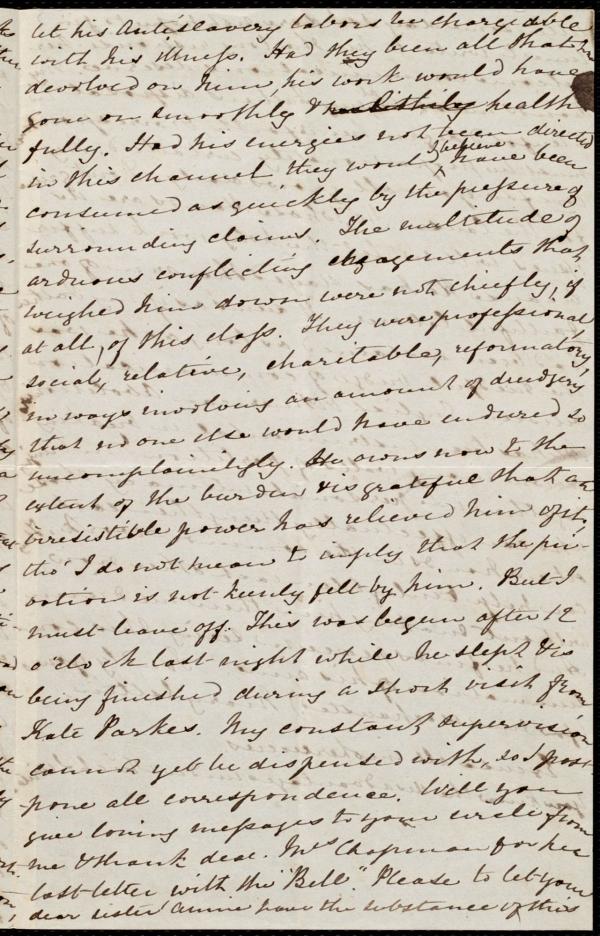 let his Antislavery labors be chargeable
with his illness. Had they been all that
devolved on him, his work would have
gone on smoothly & healthily health
fully. Had his energies not been directed
in this channel they would I believe have been
consumed as quickly by the pressure of
surrounding claims. The multitude of
arduous conflicting engagements that
weighed him down were not chiefly, if
at all, of this class. They were professional
social, relative, charitable, reformatory,
in ways involving an amount of drudgery
that no one else would have endured so
uncomplainingly. He owns now to the
extent of the burden & is grateful that an
irresistible power has relieved him of it,
tho' I do not mean to imply that the pri-
vation is not keenly felt by him. But I
must leave off. This was begun after 12
o'clock last night while he slept & is
being finished during a short visit from
Kate Parkes. My constant supervision
cannot yet be dispensed with, so I post-
pone all correspondence. Will you
give loving messages to your uncle from
me & thank dear Mrs Chapman for her
last letter with the "Bell". Please to let your
dear sister Annie have the substance of this